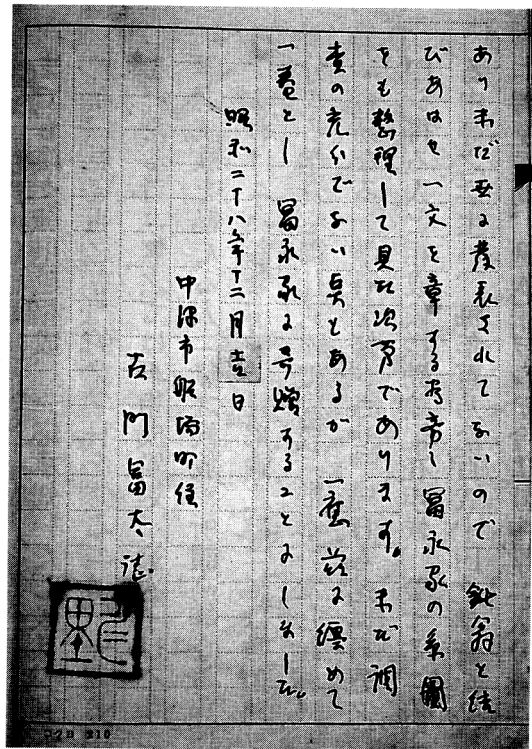 あり未だ世に発表されてないので 鈍翁と結
びあはせ一文を章する考旁〻冨永家の系圖
をも整理して見た次第であります。未だ調
査の充分でない点もあるが 一應茲に纏めて
一巻とし 冨永家に寄贈することにしました。
昭和二十八年十二月吉日
中津市船場町住
古門冨太 誌
コクヨ 210